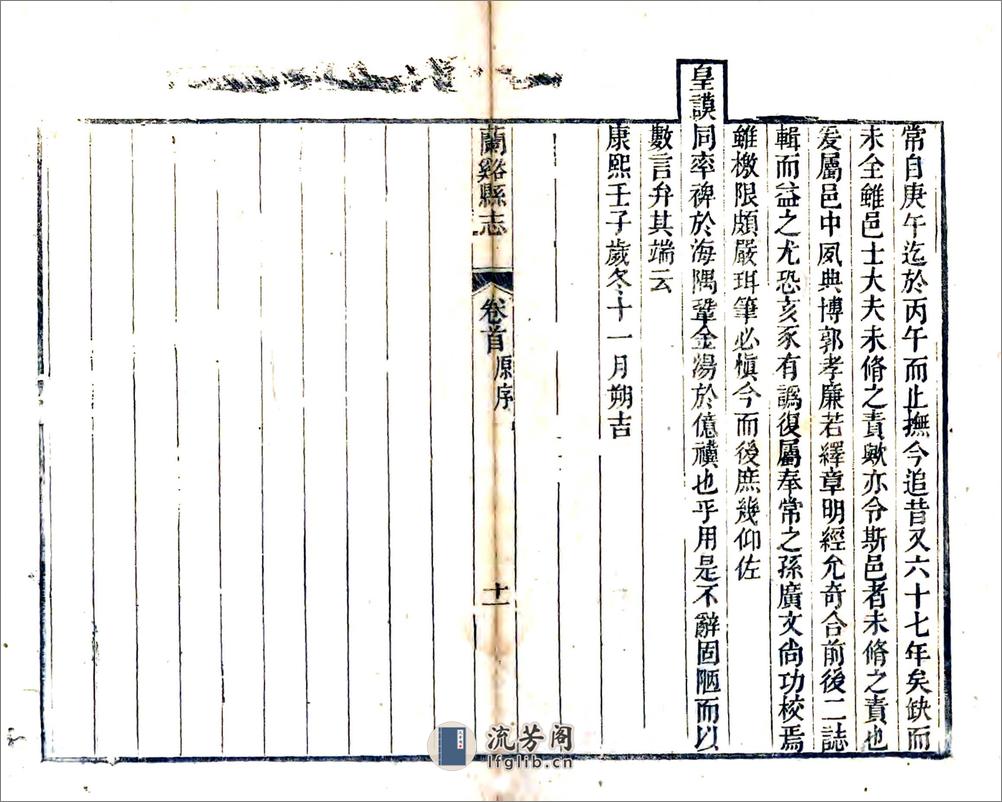 常自庚午迄於丙午而止撫今追昔又六十七年矣缺而
未全雖邑士大夫未脩之責歟亦令斯邑者未脩之責也
爰屬邑中夙典博郭孝廉若繹章明經允奇合前後二誌
輯而益之尤恐亥豕有譌復屬奉常之孫廣文尚功校焉
雖檄限頗嚴珥筆必慎今而後庶幾仰佐
皇謨同率裨於海隅鞏金湯於億禩也乎用是不辭固陋而以
數言弁其端云
康熙壬子歲冬十一月朔吉
蘭谿縣志
卷首
原序
十一
流芳阁
lfglib.cn